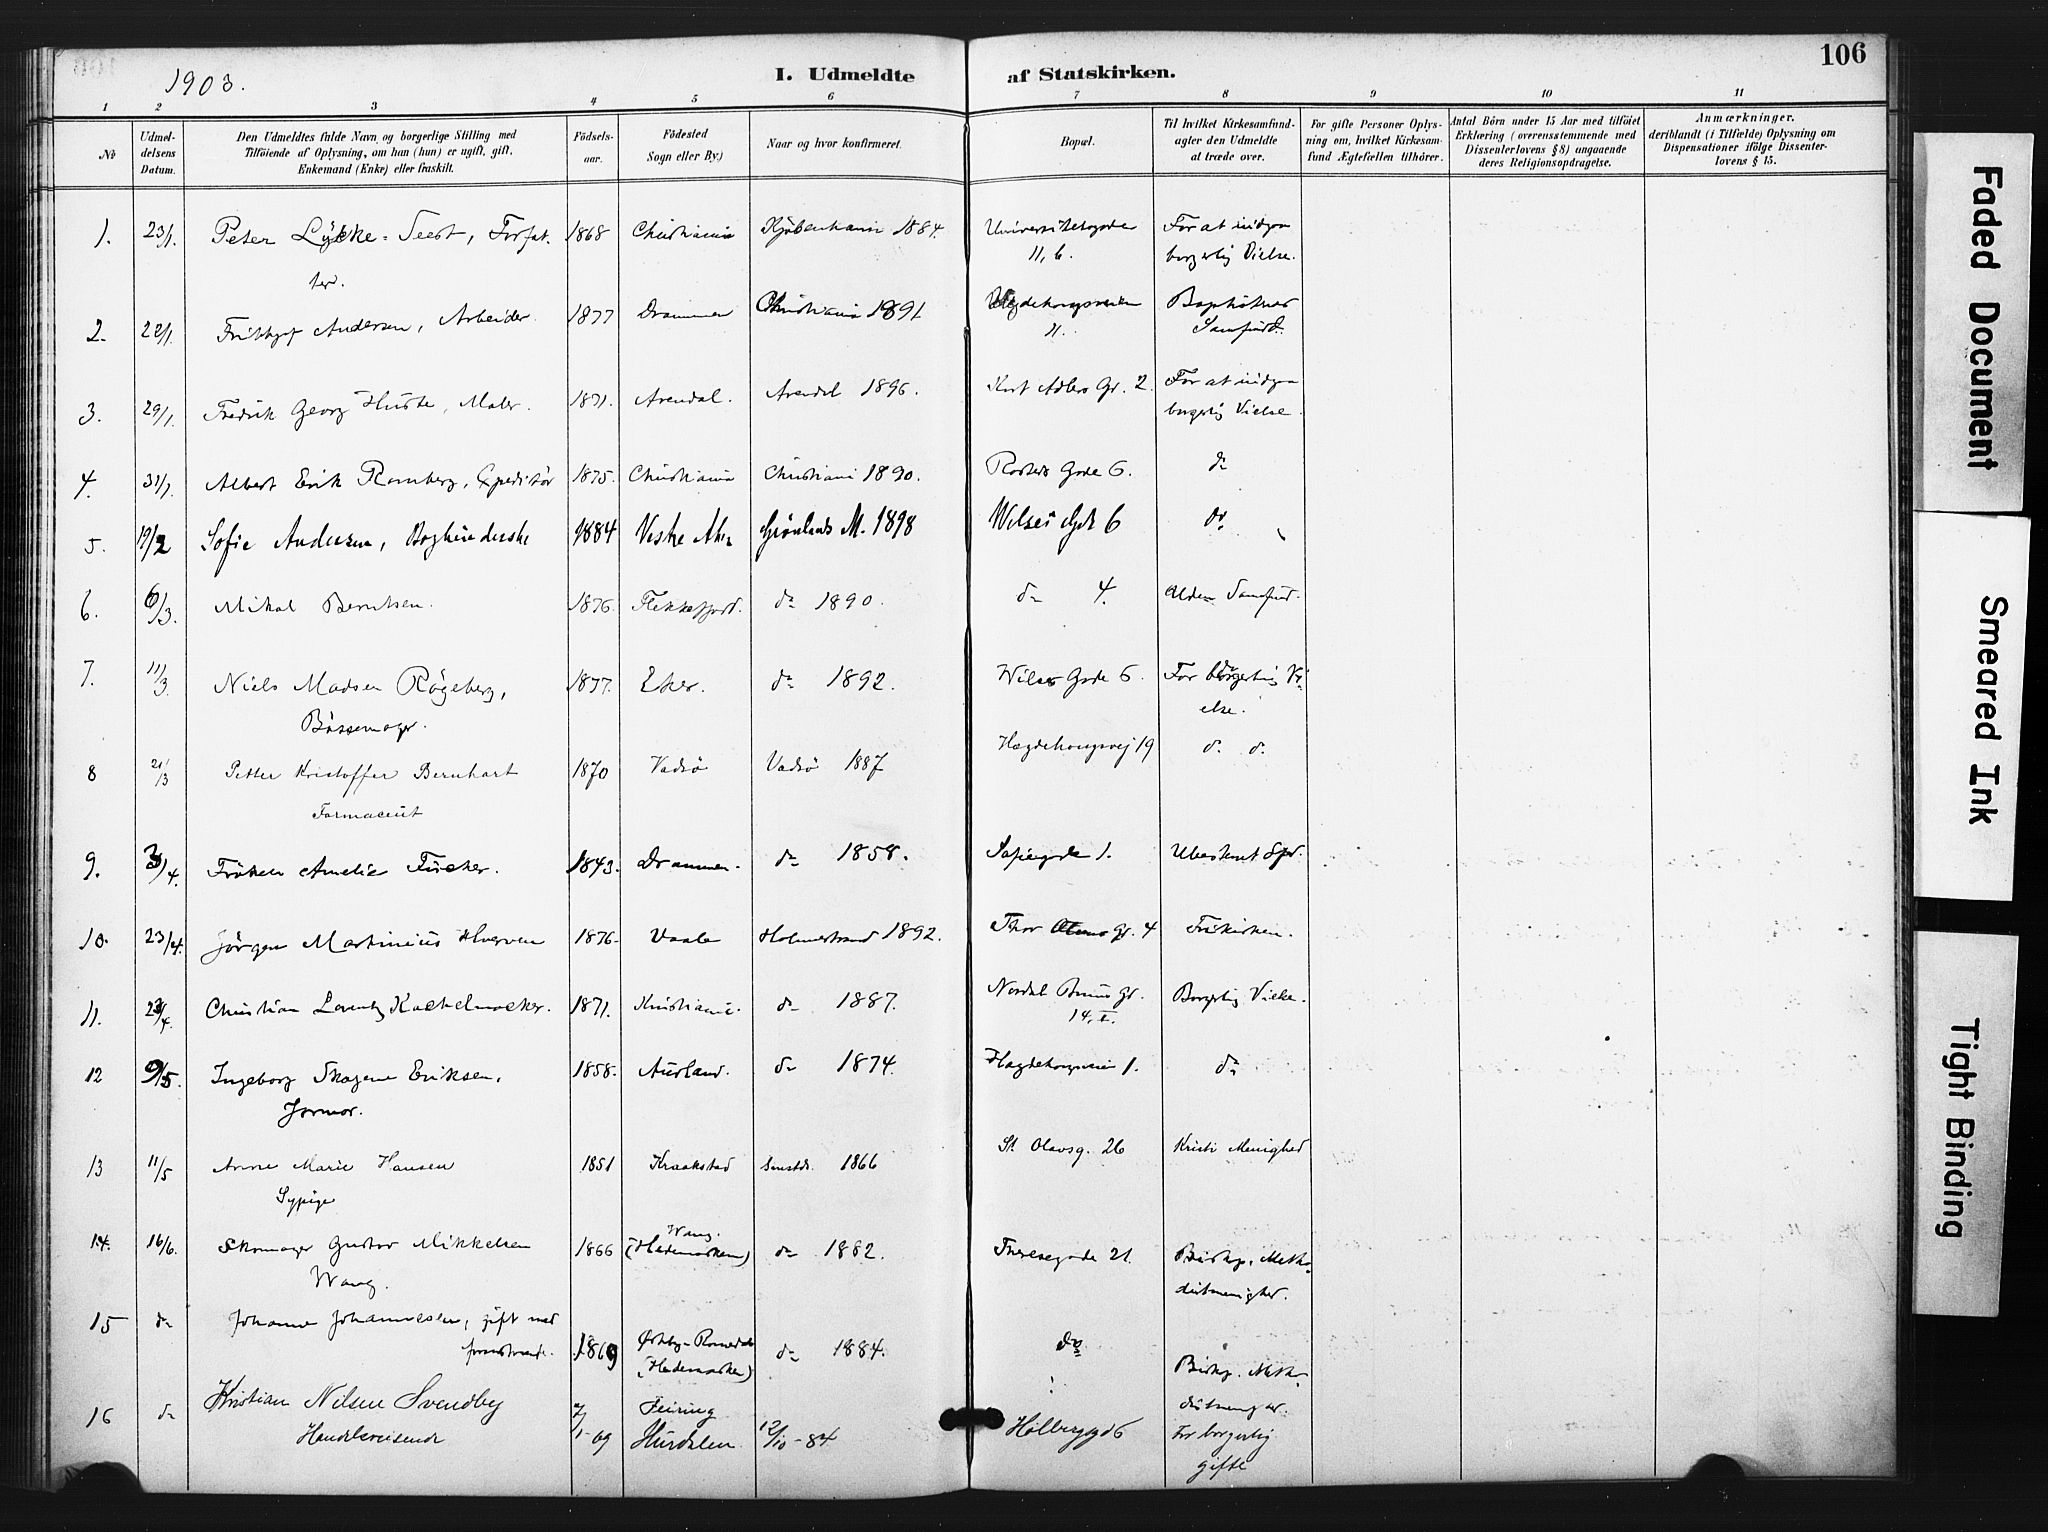 106
1903.
I. Udmeldte af Statskirken.
1 2 3 4 5 6 7 8 9 10 11
No
Udmel-
delsens
Datum.
Den Udmeldtes fulde Navn og borgerlige Stilling med
Tilføiende af Oplysning, om han (hun) er ugift, gift,
Enkemand (Enke) eller fraskilt.
Fødsels-
aar.
Fødested
Sogn eller By.)
Naar og hvor konfirmeret.
Bopæl.
Til hvilket Kirkesamfund-
agter den Udmeldte
at træde over.
For gifte Personer Oplys-
ning om, hvilket Kirkesam-
fund Ægtefællen tilhører.
Antal Børn under 15 Aar med tilføiet
Erklæring (overensstemmende med
Dissenterlovens § 8) angaaende
deres Religionsopdragelse.
Anmærkninger,
deriblandt (i Tilfælde) Oplysning om
Dispensationer ifølge Dissenter-
lovens § 15.
1. 23/1. Peter Lykke-Seest, Forfat- 1868 Christiania Kjøbenhavn 1884. Universitetsgaden For at indgaa
ter. 11, b. borgerlig Vielse.
2. 22/1. Frithjof Andersen, Arbeider. 1877 Drammen Christiania 1891. Hegdehaugsveien Baptisternes
11. Samfund.
3. 29/1. Fredrik Georg Huste, Maler. 1871. Arendal. Arendal 1896. Kort Adlers Gd. 2. For at indgaa
borgerlig Vielse.
4. 31/1. Albert Erik Ramberg, Expeditør 1875. Christiania Christiania 1890. Rosteds Gade 6. do
5. 19/2 Sofie Andersen, Bogbinderske 1884 Vestre Aker Grønlands M. 1898 Wilses Gde 6 do.
6. 6/3. Mikal Berntsen. 1876. Flekkefjord. do 1890. do 4. Uden Samfund.
7. 11/3. Niels Madsen Røgeberg, 1877. Eker. do 1892. Wilses Gade 6. For borgerlig Vi-
Bøssemager. else.
8 21/3 Petter Kristoffer Bernhart 1870 Vadsø Vadsø 1887 Hægdehaugsvej 19 d. d.
Farmaceut
9. 3/4. Frøken Amelie Fücker. 1843. Drammen. do 1858. Sofiegade 1. Ubestemt Spd.
10. 23/4. Jørgen Martinius Hverven 1876. Vaale Holmestrand 1892. Thor Olsens Gd. 4 Frikirken.
11. 23/4. Christian Lorentz Kackelmacker. 1871. Kristiania. do 1887. Nordal Bruns Gd. Borgerlig Vielse.
14, I.
12 9/5. Ingeborg Skagene Eriksen, 1858. Aurland. do 1874. Hægdehaugsveien 1. do
Jormor.
13 11/5 Anne Marie Hansen 1851 Kraakstad Smstds. 1866 St. Olavsg. 26 Kristi Menighed
Sypige
14. 16/6. Skomager Gustav Mikkelsen 1866 Wang. (Hedemarken) do 1882. Theresegade 21. Biskop. Metho-
Wang. distmenighed.
15 do Johanne Johannesen, gift med 1869 do 1884. do
foranstaaende. (Hedemarken) Biskop. Metho-
16 do Kristian Nilsen Svendby 7/1-69 Feiring
Handelsreisende Hurdalen 12/10-84 Holbergsgd 6 For borgerlig
gifte
Faded Document
Smeared Ink
Tight Binding